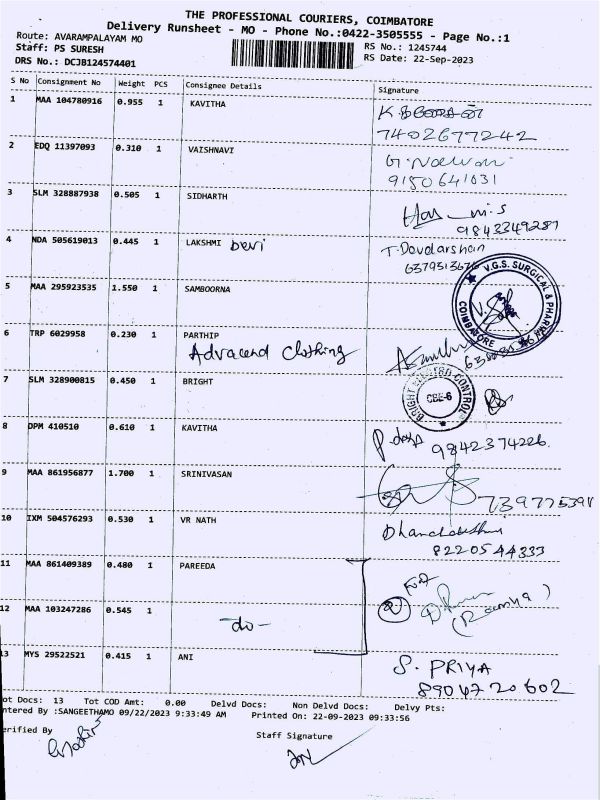 THE PROFESSIONAL COURIERS, COIMBATORE
Delivery Runsheet - MO - Phone No.:0422-3505555 - Page No.:1
Route: AVARAMPALAYAM MO
RS No.: 1245744
Staff: PS SURESH
RS Date: 22-Sep-2023
DRS No.: DCJB124574401
S No Consignment No Weight PCS Consignee Details Signature
1 MAA 104780916 0.955 1 KAVITHA
7402677242
2 EDQ 11397093 0.310 1 VAISHNAVI
9150641031
3 SLM 328887938 0.505 1 SIDHARTH
9843349287
4 NDA 505619013 0.445 1 LAKSHMI Devi T. Devdarshan
V.G.S. SURGICAL & PHARMA
COIMBATORE
5 MAA 295923535 1.550 1 SAMBOORNA
6 TRP 6029958 0.230 1 PARTHIP
Advacend Clothing
7 SLM 328900815 0.450 1 BRIGHT
BRIGHT CONTROL
CBE-6
8 DPM 410510 0.610 1 KAVITHA
9842374226.
9 MAA 861956877 1.700 1 SRINIVASAN
10 IXM 504576293 0.530 1 VR NATH
8220544333
11 MAA 861409389 0.480 1 PAREEDA
12 MAA 103247286 0.545 1
-do-
(Ramya)
13 MYS 29522521 0.415 1 ANI S. PRIYA
8904720602
ot Docs: 13 Tot COD Amt: 0.00 Delvd Docs: Non Delvd Docs: Delvy Pts:
ntered By :SANGEETHAMO 09/22/2023 9:33:49 AM Printed On: 22-09-2023 09:33:56
erified By
Staff Signature